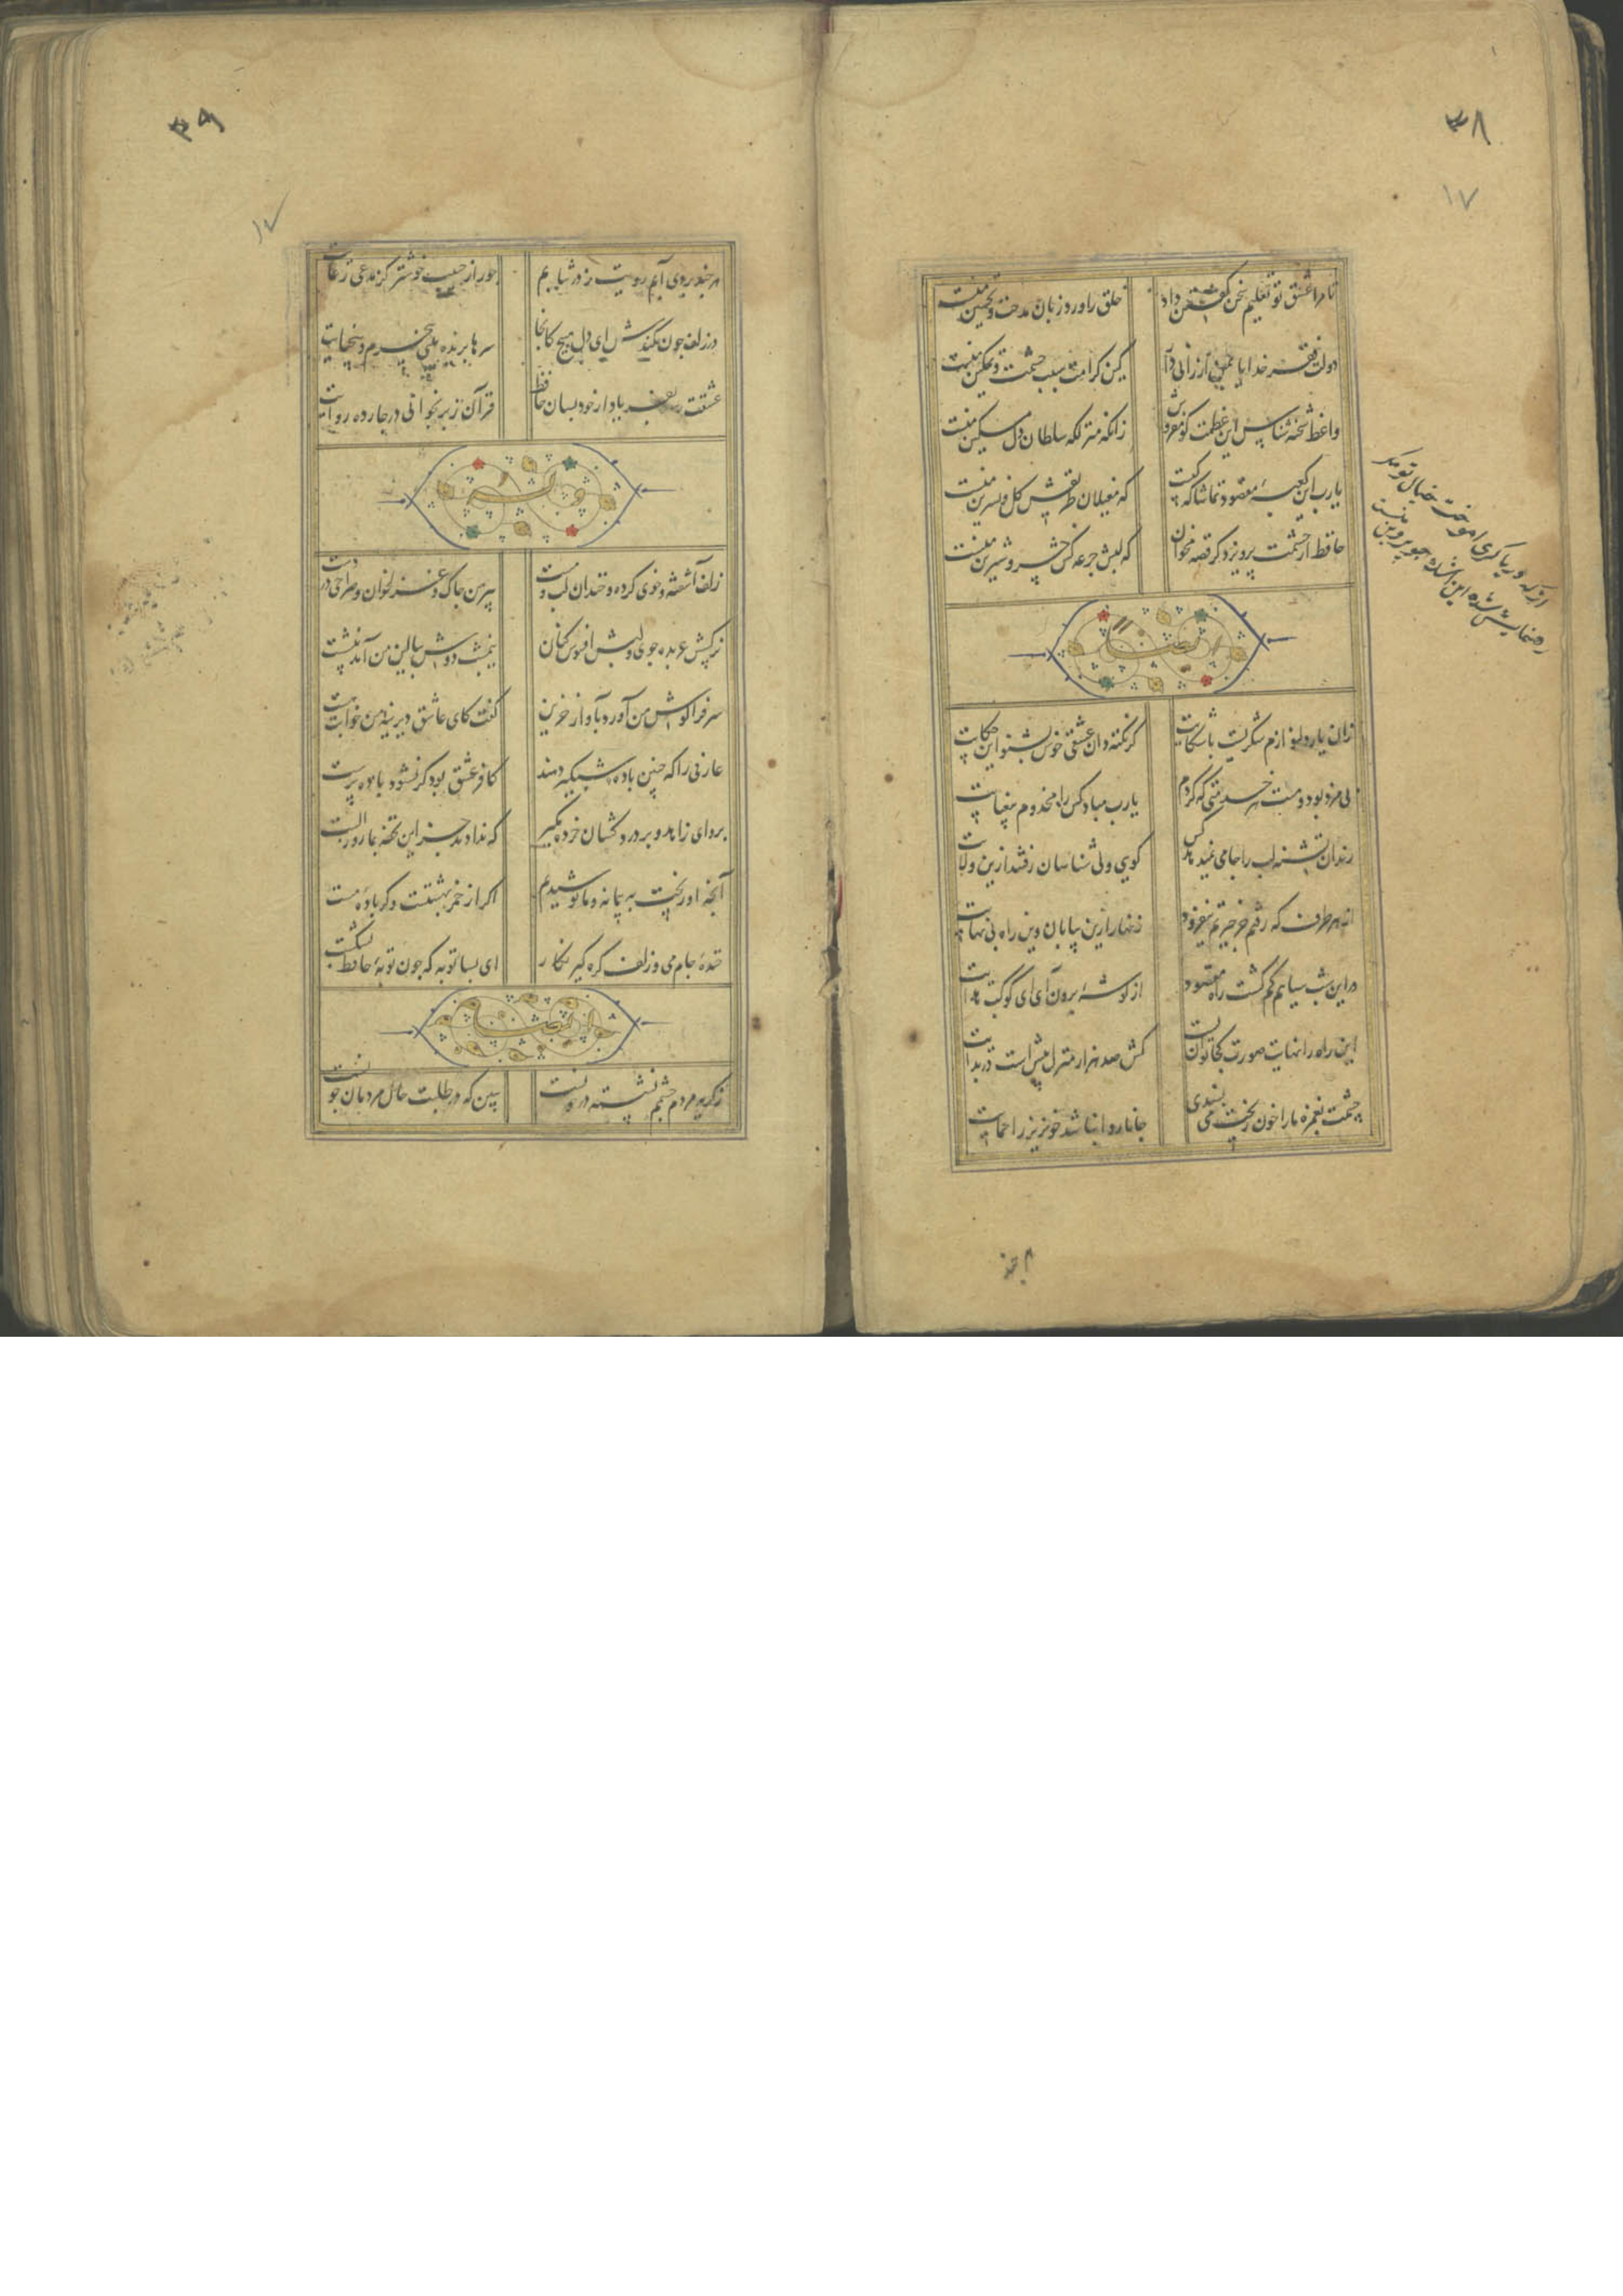 ۳۸
۱۷
تا مرا عشق تو تعلیم سخن گفتن داد
خلق را ورد زبان مدحت و تحسین منست
دولت فقر خدایا بمن ارزانی دار
کین کرامت سبب حشمت و تمکین منست
واعظ شحنه شناس این عظمت کو مفروش
زانکه منزلکه سلطان دل مسکین منست
یا رب این کعبهٔ مقصود تماشاکه کیست
که مغیلان طریقش کل و نسرین منست
حافظ از حشمت پرویز دکر قصه مخوان
که لبش جرعه کش خسرو شیرین منست
از که دریا کری اموخت خیال تو مکر
رهنمایش شده این اشک جو پروین منست
ایضا
زان یار دلنوازم شکریست با شکایت
کر نکته دان عشقی خوش بشنو این حکایت
بی مزد بود و منت هر خدمتی که کردم
یا رب مباد کس را مخدوم بی عنایت
رندان تشنه لب را جامی نمیدهد کس
کویی ولی شناسان رفتند ازین ولایت
از هر طرف که رفتم جز حیرتم نیفزود
زنهار ازین بیابان وین راه بی نهایت
در این شب سیاهم کم کشت راه مقصود
از کوشهٔ برون آی ای کوکب هدایت
این راه را نهایت صورت کجا توان بست
کش صد هزار منزل بیش است در بدایت
چشمت بغمزه ما را خون ریخت می پسندی
جانا روا نباشد خونریز را حمایت
۳۹
۱۷
هر چند بردی آبم رویت ز در نتابم
جور از حبیب خوشتر کز مدعی رعایت
در زلف جون کمندش ای دل مپیچ کانجا
سرها بریده بینی بی جرم و بی جنایت
عشقت رسد بفریاد ار خود بسان حافظ
قرآن ز بر بخوانی در جارده روایت
وله
زلف آشفته و خوی کرده و خندان لب و مست
پیرهن جاک و غزلخوان و صراحی در دست
نرکسش عربده جوی و لبش افسوس کنان
نیمشب دوش ببالین من آمد بنشست
سر فرا کوش من آورد بآواز حزین
کفت کای عاشق دیرینهٔ من خوابت هست
عارفی را که چنین باده شبکیر دهند
کافر عشق بود کر نشود باده پرست
برو ای زاهد و بر درد کشان خرده مکیر
که ندادند جز این تحفه بما روز الست
آنجه او ریخت به پیمانه و ما نوشیدیم
اکر از خمر بهشتست و کر بادهٔ مست
خندهٔ جام می و زلف کره کیر نکار
ای بسا توبه که جون توبهٔ حافظ بشکست
ایضا
ز کریه مردم چشمم نشسته در خونست
ببین که در طلبت حال مردمان جونست